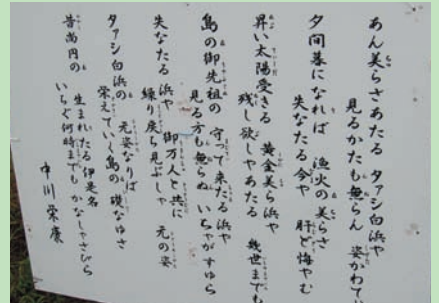 あん美らさあたる タアシ白浜や
見るかたも無らん 姿かわてぃ
夕間暮になれば 漁火の美らさ
失なたる今や 肝ど悔やむ
昇い太陽受きる 黄金美ら浜や
残し欲しゃあたる 幾世までも
島の御先祖の 守って来たる浜や
見る方も無らぬ いちゃがすゆら
失なたる 浜や 御万人と共に
繰り戻ち見ぶしゃ 元の姿
タアシ白浜の 元姿なりば
栄えていく島の 礎なゆさ
昔尚円の 生まれたる伊是名
いちど何時までも かなしゃさびら
中川栄康